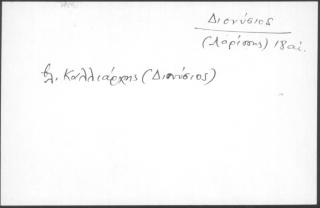 Διονύσιος
(Λαρίσσης) 18 αἰ.
βλ. Καλλιάρχης (Διονύσιος)